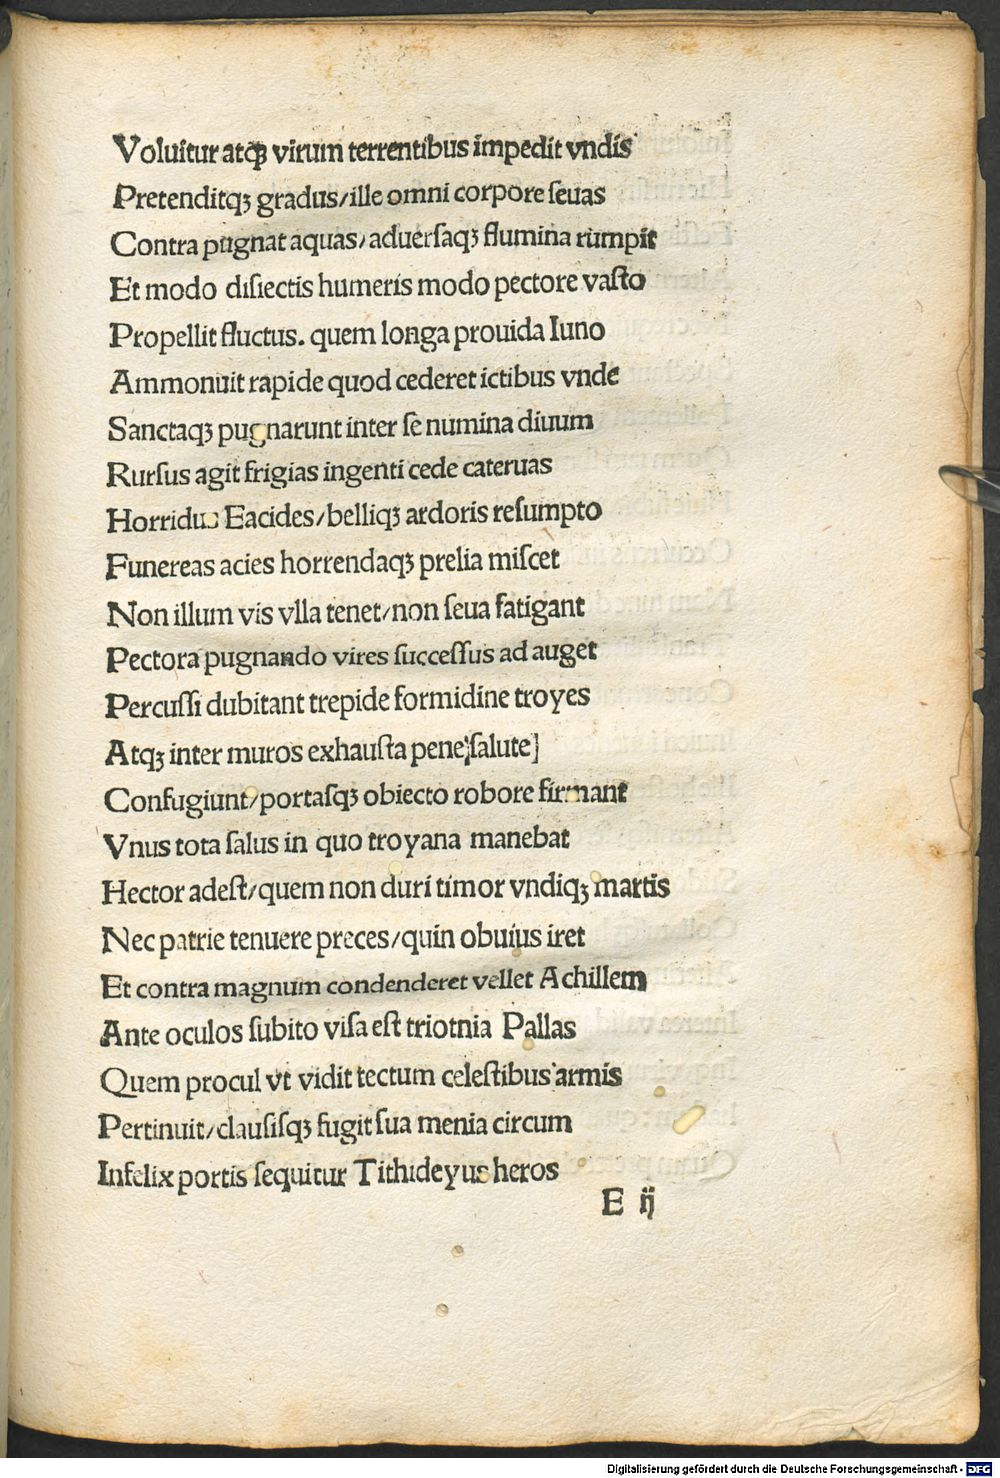 Voluitur atqꝫ virum terrentibus impedit vndis
Pretenditqꝫ gradus/ille omni corpore ſeuas
Contra pugnat aquas/aduerſaqꝫ flumina rumpit
Et modo diſiectis humeris modo pectore vaſto
Propellit fluctus. quem longa prouida Iuno
Ammonuit rapide quod cederet ictibus vnde
Sanctaqꝫ pugnarunt inter ſe numina diuum
Rurſus agit frigias ingenti cede cateruas
Horridus Eacides/belliqꝫ ardoris reſumpto
Funereas acies horrendaqꝫ prelia miſcet
Non illum vis vlla tenet/non ſeua fatigant
Pectora pugnando vires ſucceſſus ad auget
Percuſſi dubitant trepide formidine troyes
Atqꝫ inter muros exhauſta pene;ſalute]
Confugiunt/portaſqꝫ obiecto robore firmant
Vnus tota ſalus in quo troyana manebat
Hector adeſt/quem non duri timor vndiqꝫ martis
Nec patrie tenuere preces/quin obuius iret
Et contra magnum condenderet vellet Achillem
Ante oculos ſubito viſa eſt triotnia Pallas
Quem procul vt vidit tectum celeſtibus armis
Pertinuit/clauſiſqꝫ fugit ſua menia circum
Infelix portis ſequitur Tithideyus heros
E ij
Digitalisierung gefördert durch die Deutsche Forschungsgemeinschaft - DFG